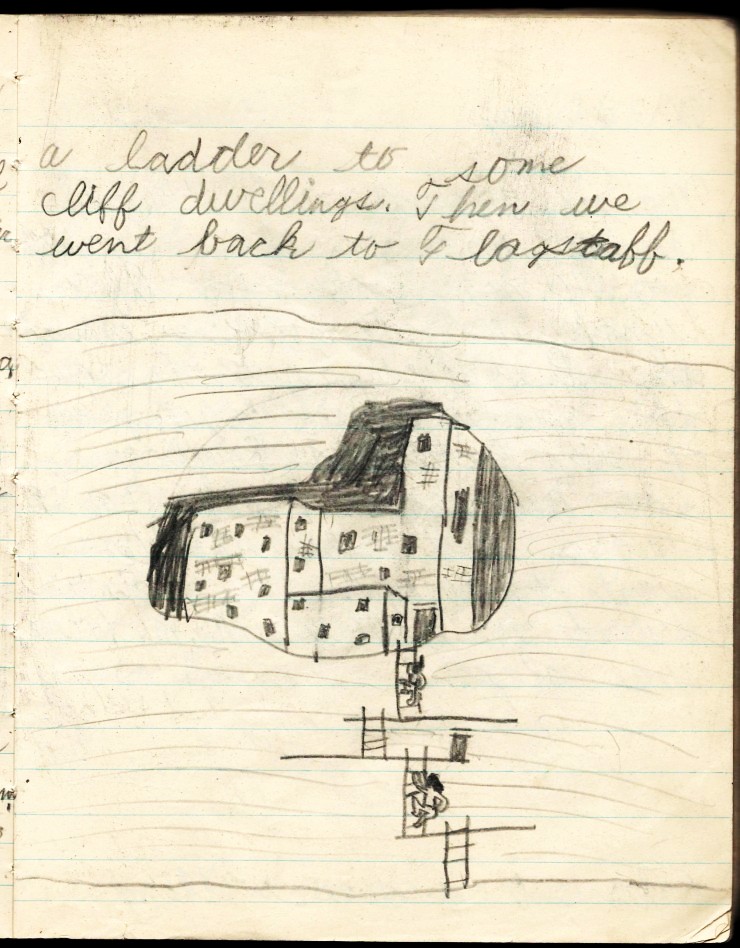 a ladder to some
cliff dwellings. Then we
went back to Flagstaff.